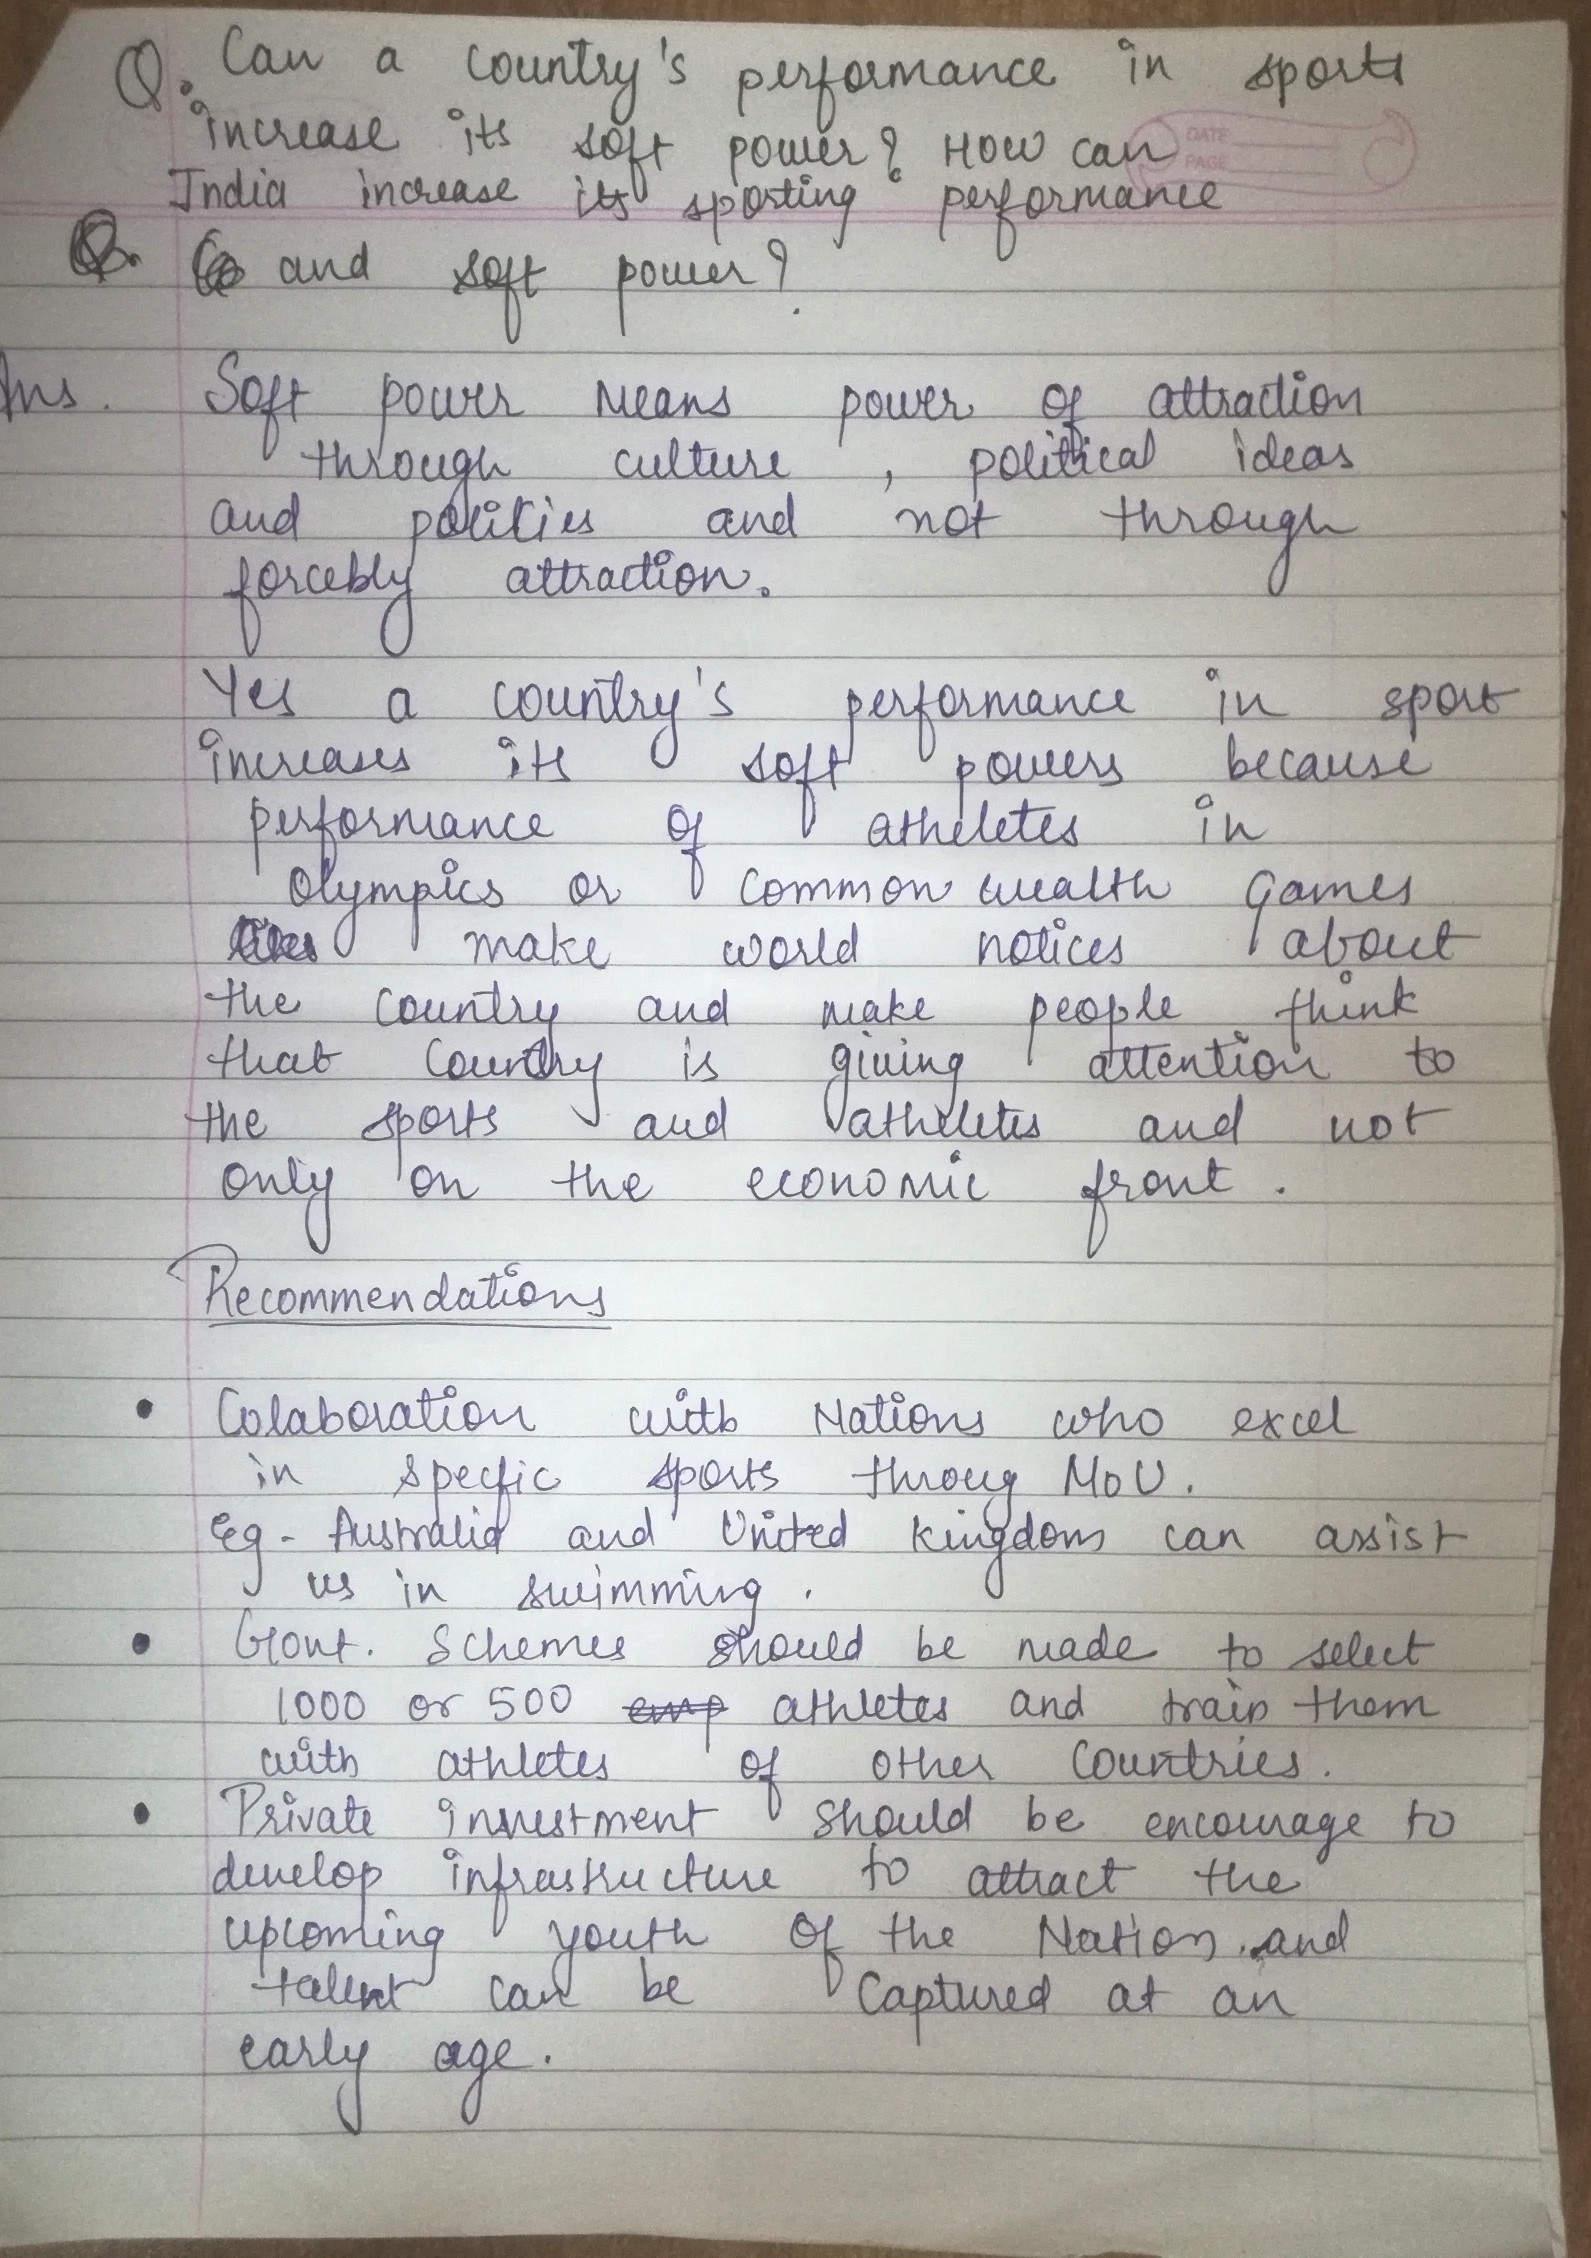 Q. Can a country's performance in sports
DATE
increase its soft power? How can
PAGE
India increase its sporting performance
Q. and soft power?
Ans. Soft power means power of attraction
through culture, political ideas
and polities and not through
forcebly attraction.
Yes a country's performance in sport
increases its soft powers because
performance of atheletes in
Olympics or common wealth Games
make world notices about
the country and make people think
that country is giving attention to
the sports and atheletes and not
only on the economic front.
Recommendations
• Colaboration with Nations who excel
in specfic sports throug MoU.
eg - Australia and United kingdom can assist
us in swimming.
• Govt. Schemes should be made to select
1000 or 500 emp athletes and train them
with athletes of other countries.
• Private investment should be encourage to
develop infrastructure to attract the
upcoming youth of the Nation. and
talent can be captured at an
early age.